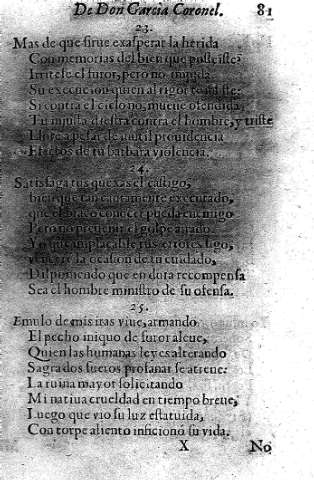 De Don Garcia Coronel. 81
23.
Mas de que sirue exasperar la herida
Con memorias del bien que posseiste?
Irritese el furor, pero no impida
Su execucion quien al rigor
Si contra el cielo no, mueue ofendida,
Tu injusta diestra contra el hombre, y triste
Llore a pesar de inutil prouidencia
Efectos de tu barbara violencia.
24.
Satisfaga tus quexas el castigo,
bien que tan cautamente executado,
que el braço conocer pueda enemigo
Pero no preuenir el golpe ayrado.
Yo que implacable tus errores sigo,
la ocasion de tu cuidado,
Disponiendo que en dura recompensa
Sea el hombre ministro de su ofensa.
25.
Emulo de mis iras viue, armando
El pecho iniquo de furor aleue,
Quien las humanas leyes alterando
Sagrados fueros profanar se atreue:
La ruina mayor solicitando
Mi natiua crueldad en tiempo breue,
Luego que vio su luz estatuida,
Con torpe aliento inficionò su vida.
X No